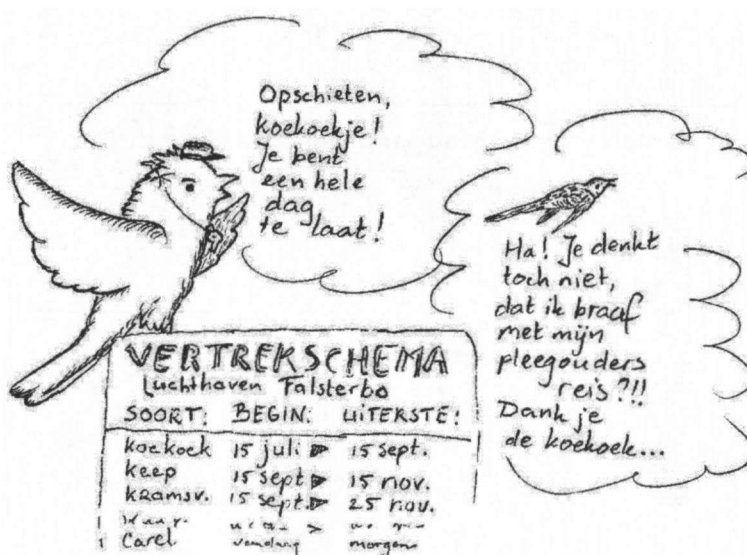 Opschieten,
koekoekje!
Je bent
een hele
dag
te laat!
Ha! Je denkt
toch niet,
dat ik braaf
met mijn
pleegouders
reis?!!
Dank je
de koekoek...
VERTREKSCHEMA
Luchthaven Falsterbo
SOORT: BEGIN: UITERSTE:
koekoek 15 juli ▶ 15 sept.
keep 15 sept ▶ 15 nov.
kramsv. 15 sept. ▶ 25 nov.
>
Carel vandaag morgen